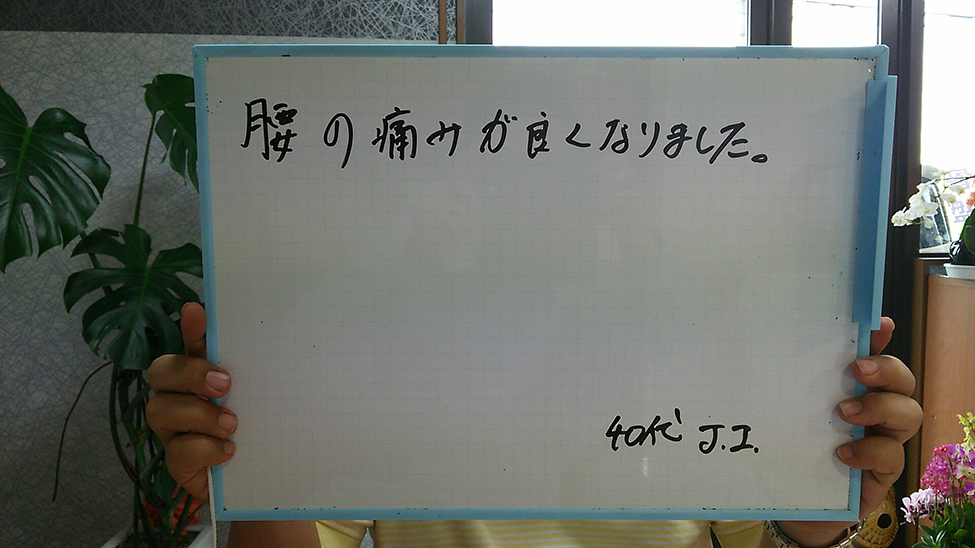 腰の痛みが良くなりました。
40代 J.I.